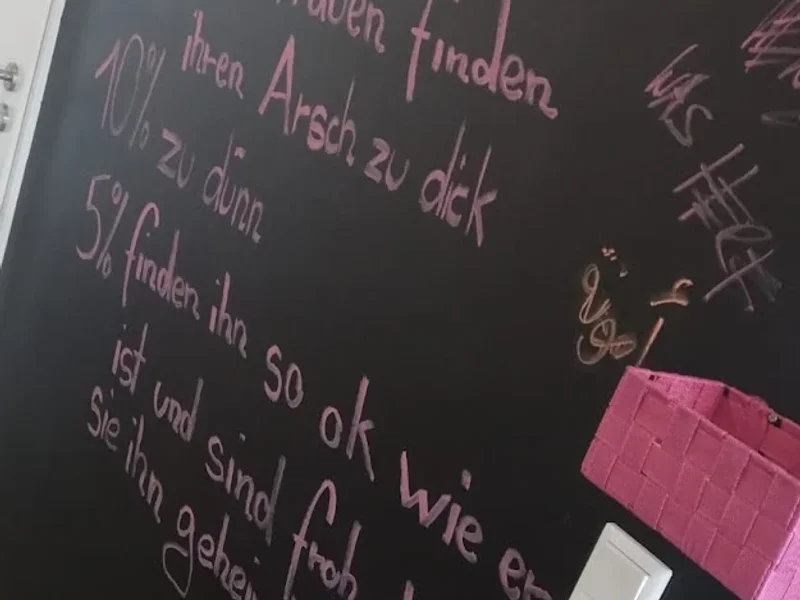 finden
ihren Arsch zu dick
10% zu dünn
5% finden ihn so ok wie er
ist und sind froh
sie ihn
was